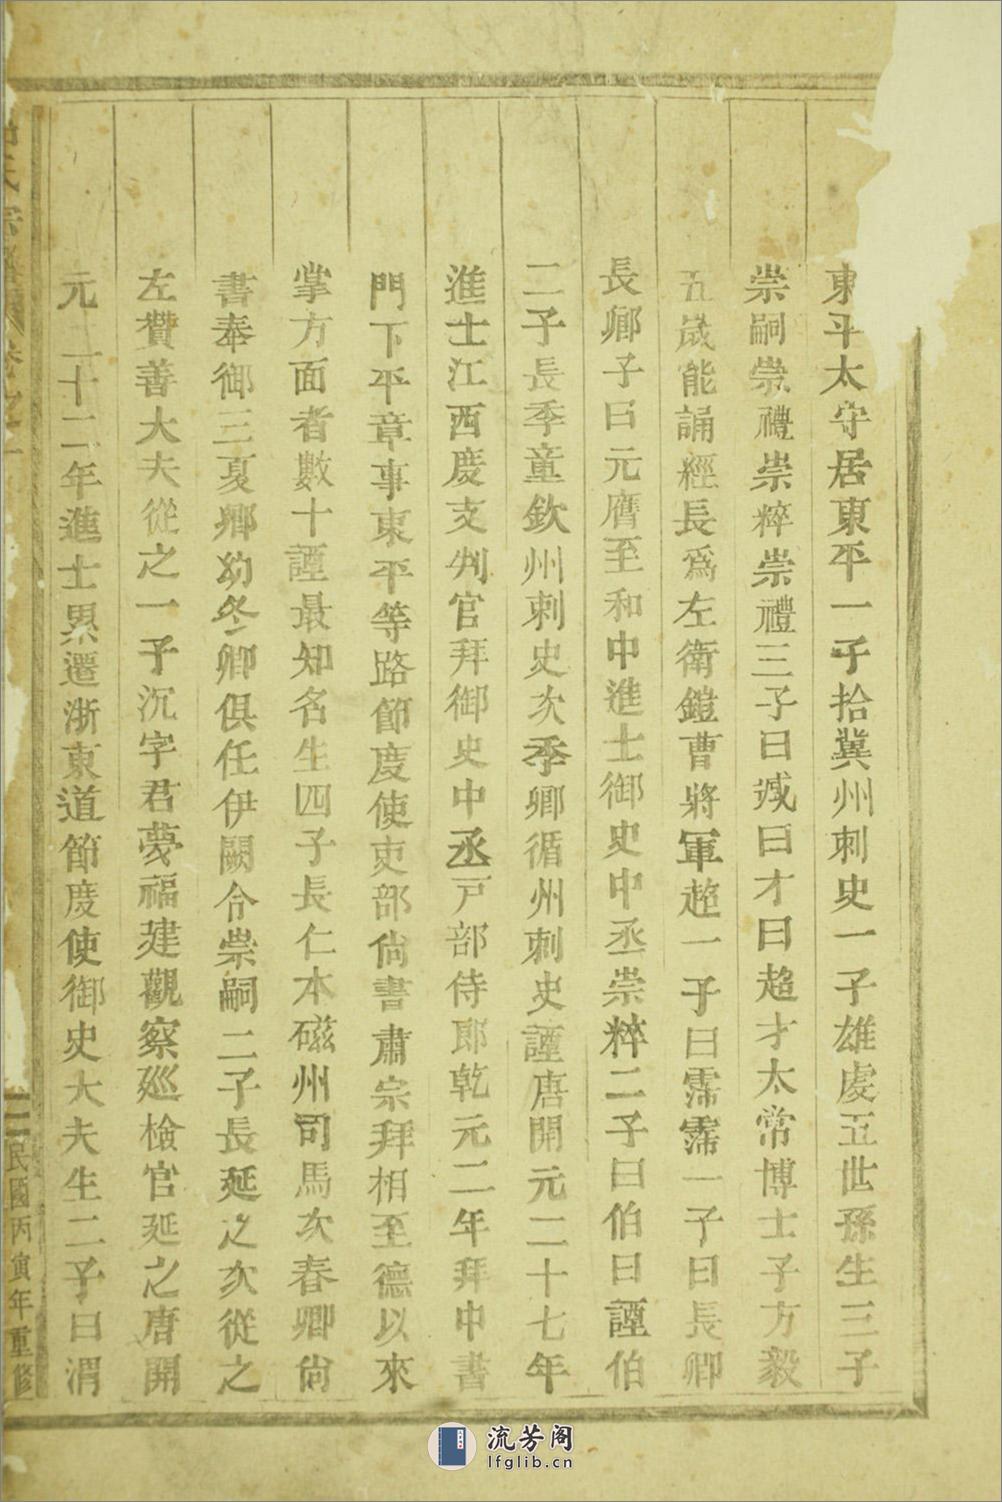 東平太守居東平一子拾冀州刺史一子雄虔五世孫生三子
崇嗣崇禮崇粹崇禮三子曰彧曰才曰超才太常博士子方毅
五歲能誦經長爲左衛鎧曹將軍趙一子曰霈霈一子曰長卿
長卿子曰元膺至和中進士御史中丞崇粹二子曰伯曰諲伯
二子長季童欽州刺史次季卿循州刺史諲唐開元二十七年
進士江西度支判官拜御史中丞戸部侍郎乾元二年拜中書
門下平章事東平等路節度使吏部尙書肅宗拜相至德以來
掌方面者數十諲最知名生四子長仁本磁州司馬次春卿尙
書奉御三夏卿幼冬卿俱任伊闕令崇嗣二子長延之次從之
左贊善大夫從之一子沉字君夢福建觀察廵檢官延之唐開
元二十二年進士累遷浙東道節度使御史大夫生二子曰渭
氏宗譜 卷之
民國丙寅年重修
流芳阁
lfglib.cn